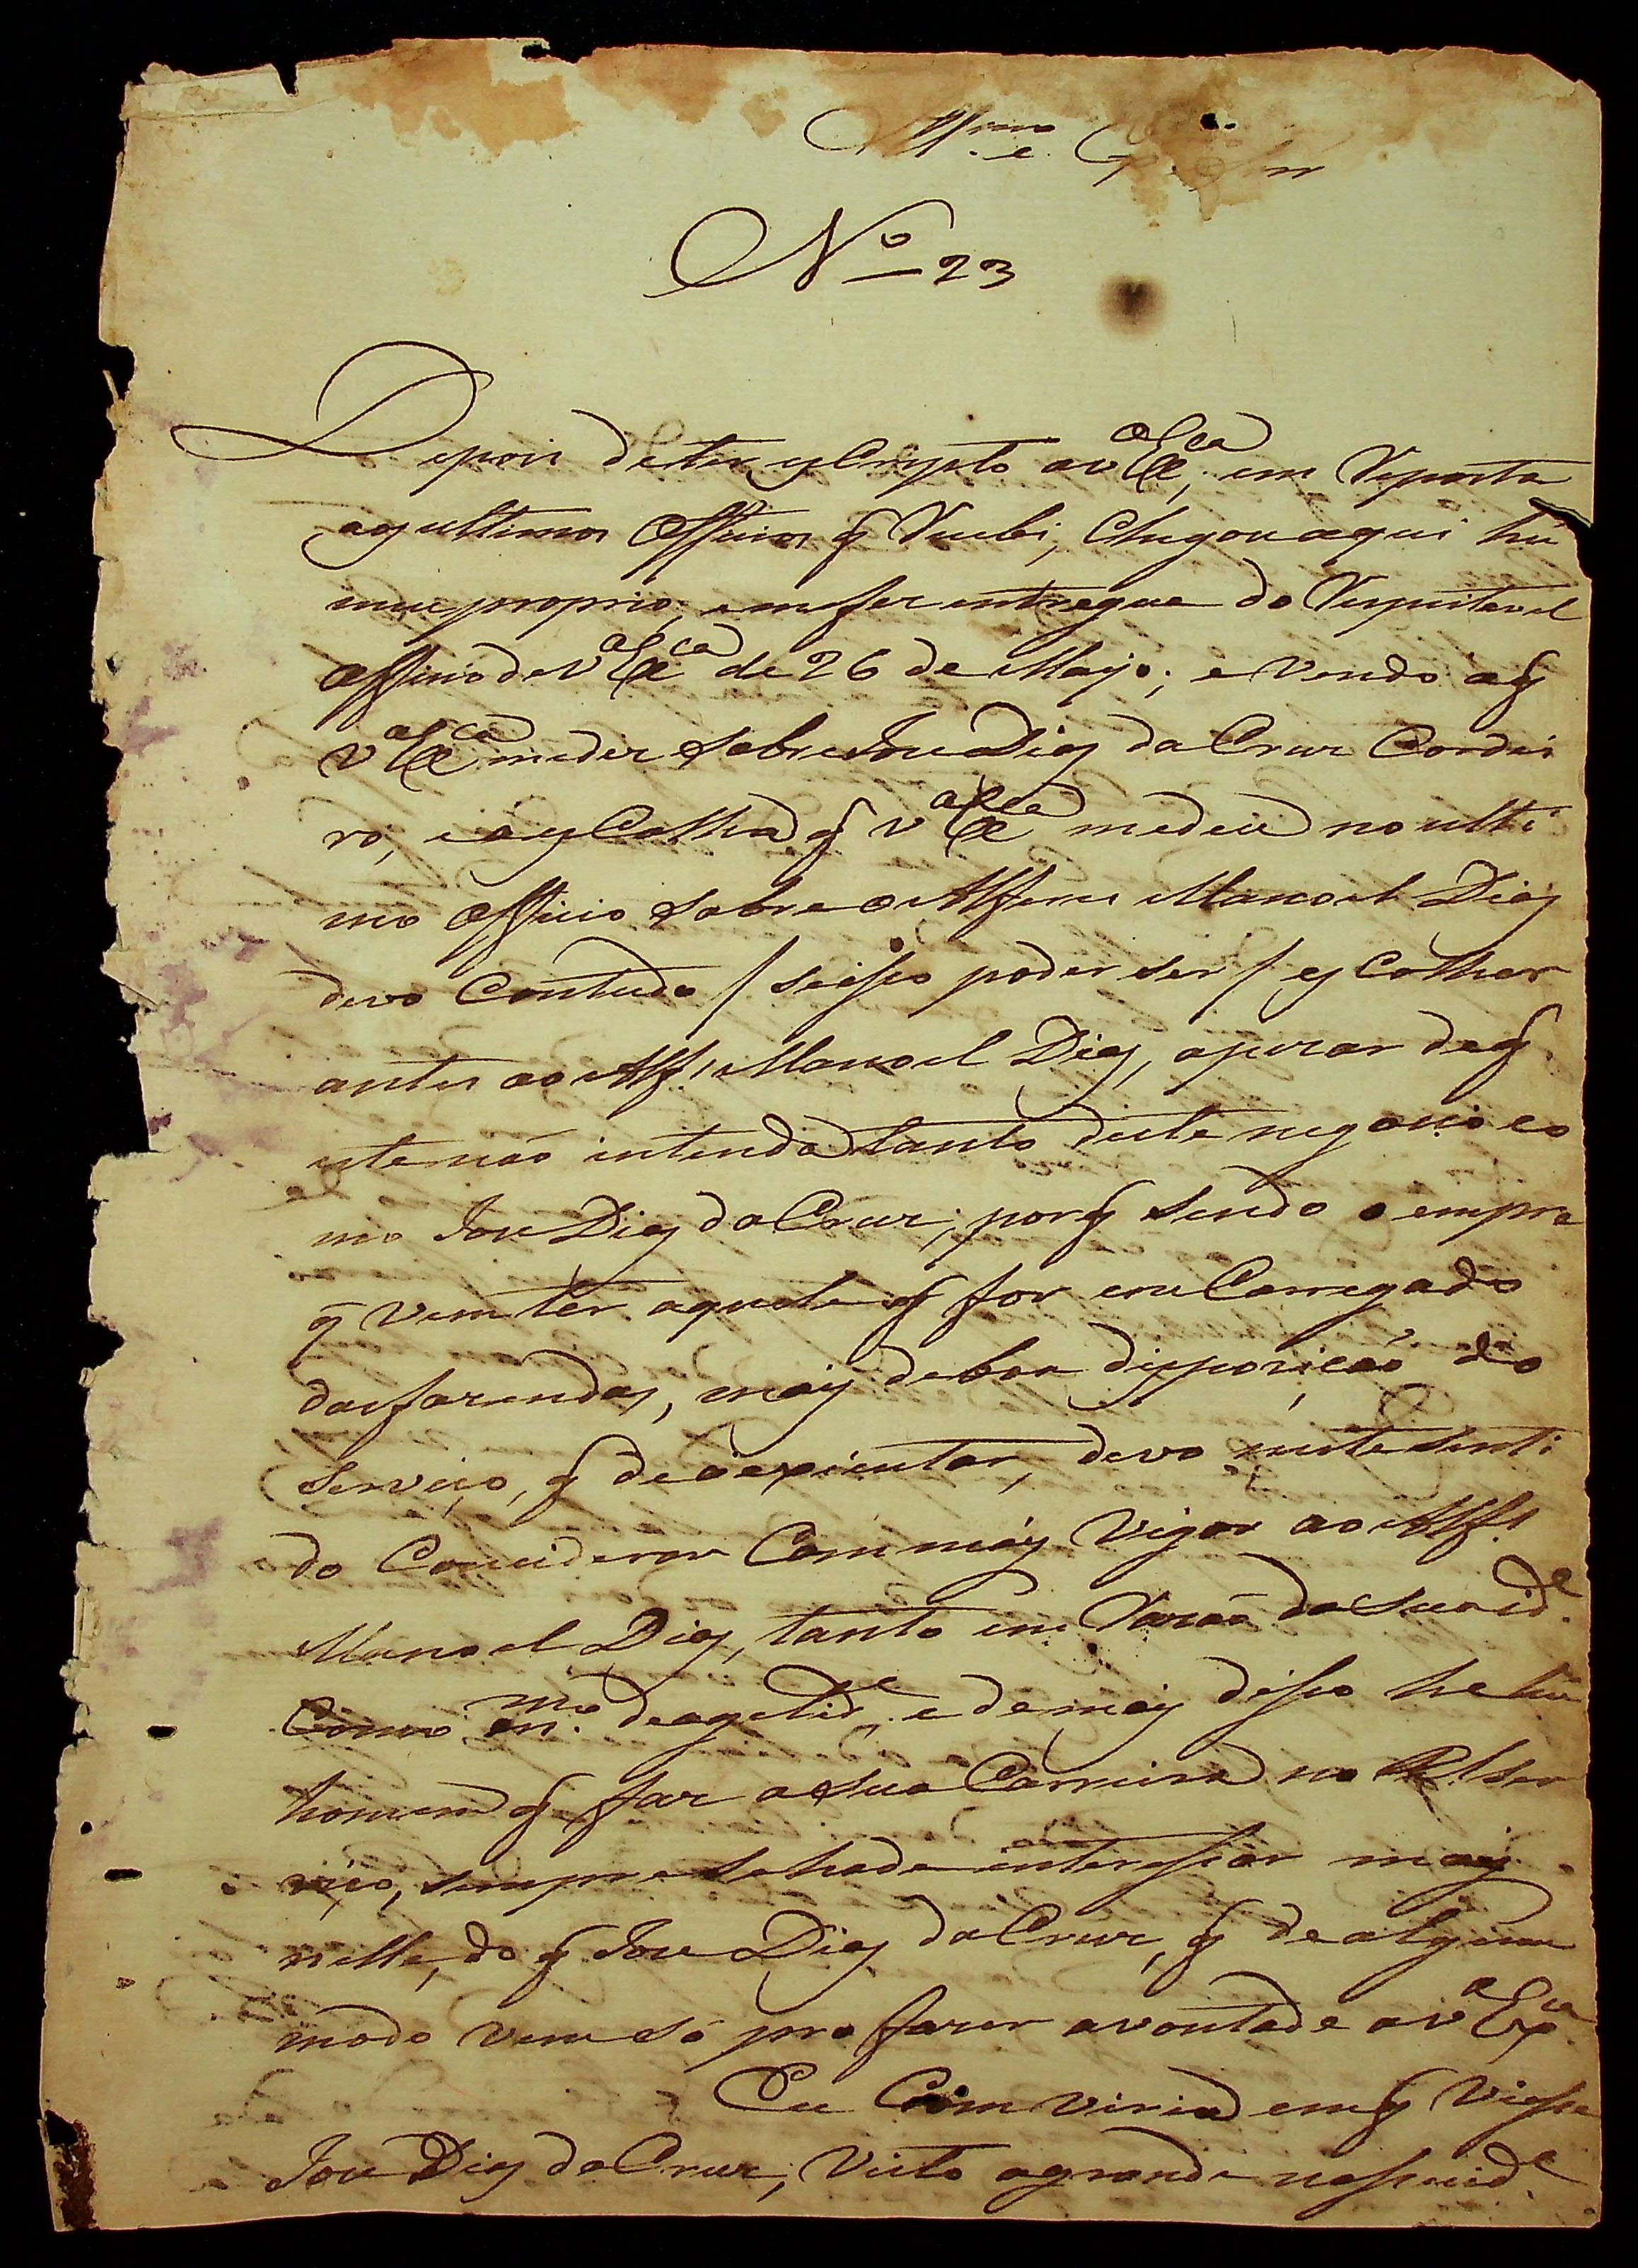 Illmo. e Ex. Snr
No 23
Depois de ter escripto a V Exca, em resposta
as ultimos Officios q Recebi, chegou aqui hũ
meu proprio, em ser entregue do Respeitavel
Officio de V Exca de 26 de Mayo; e Vendo a q
V Exca me dis sobre Joze Dias da Cruz Cordei
ro, e a escolha q V Exca me deu no ulti
mo Officio sobre o Alferes Manoel Dias
devo Contudo / se isso poder ser / escolher
antes ao Alf. Manoel Dias, apezar de q
este não intenda tanto deste negocio co
mo Joze Dias da Cruz; por q sendo o empre
g vem ter aquele q for encarregado
das fazendas, mais de boa dispozição do
Serviço, q de expicular, devo neste senti
do Conciderar Com mais Vigor ao Alf.
Manoel Dias, tanto em Razão da Sua id.e
Como mmo. de agelid.e e de mais disso he hũ
homem q faz a sua Carreira no Rl. Ser
viço, sempre se hade interessar mais
nelle, do q Joze Dias da Cruz, q de algum
modo vem só pra fazer a vontade a V Exca.
Eu Comviria em q Viesse
Joze Dias da Cruz, Visto a grande nessecid.e